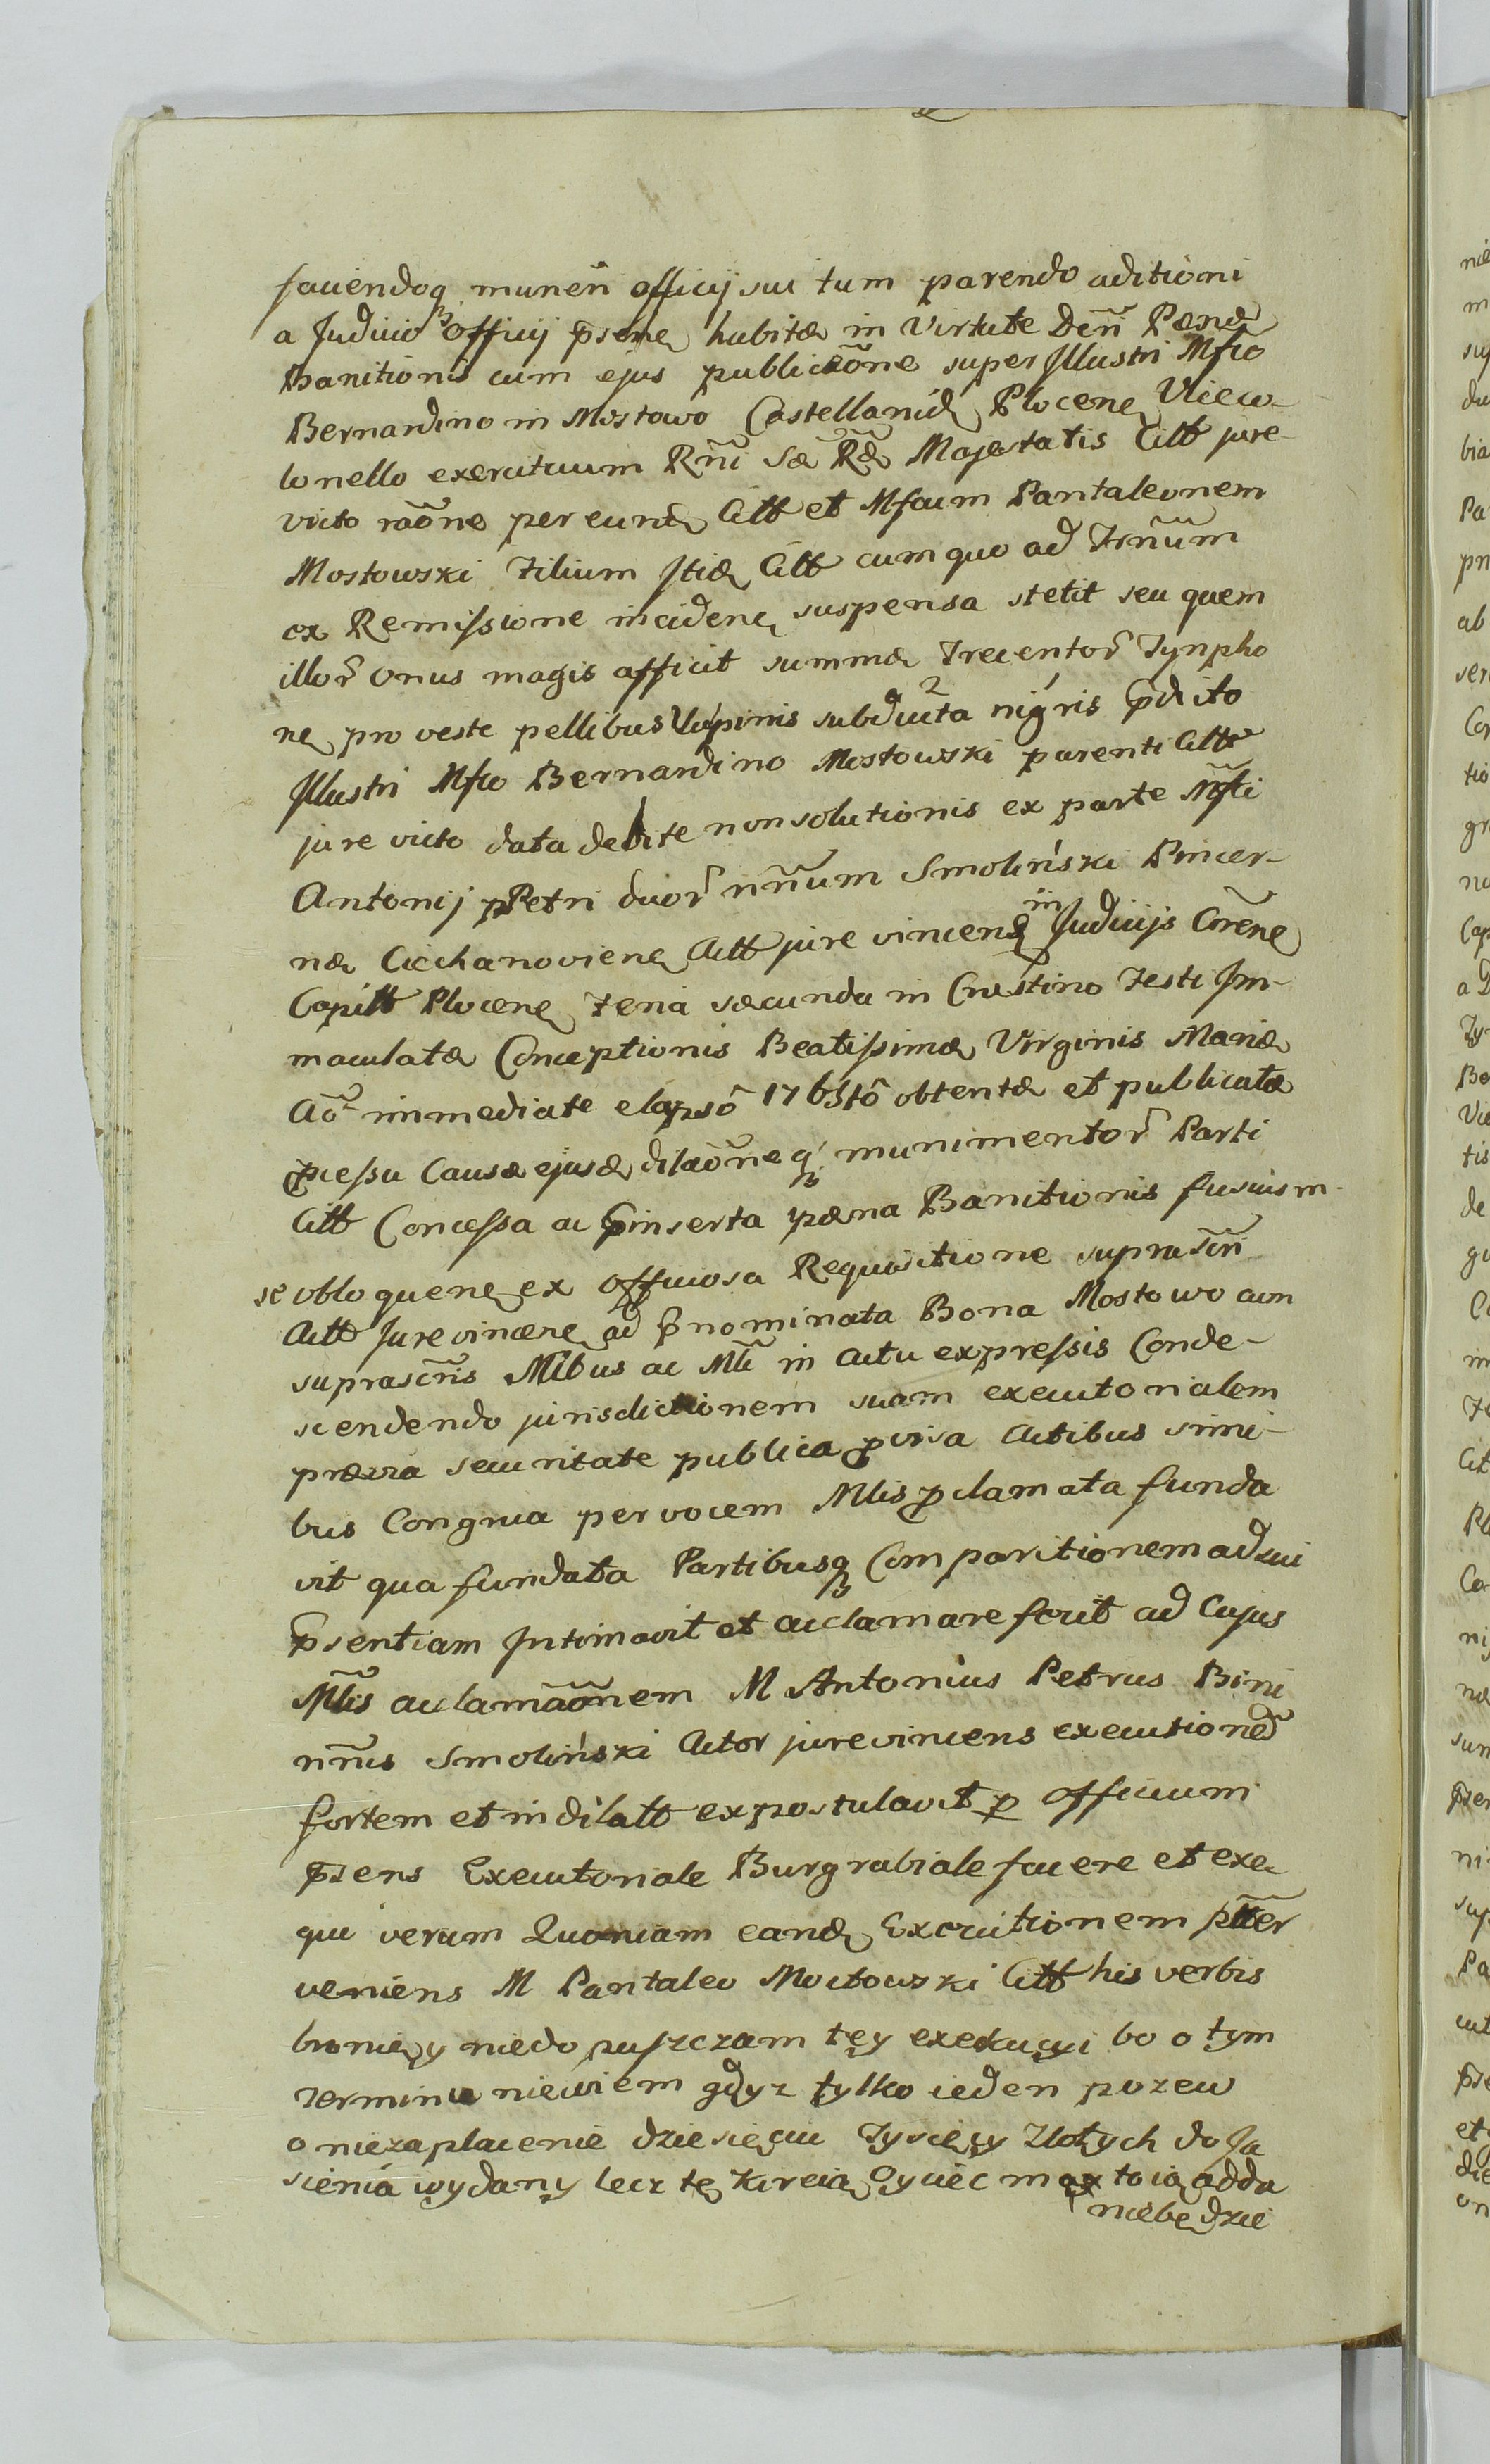 faciendoq muneri officij sui tum parendo aditioni
a Judicio officij psene habitæ in Virtute Dcri Pænæ
Banitionis cum ejus publicãone super Illustri Mfco
Bernardino in Mostowo Castellanid Plocene Viceco-
lonello exercituum Rñi Sæ Ræ Majestatis Citt jure-
victo rãone per eund Citt et Mfcum Pantaleonem
Mostowski Filium Itid Citt cum quo ad Trñum
ex Remissione inciden suspensa stetit seu quem
illor onus magis afficit summæ Trecentor Tynpho
ne pro veste pellibus Vulpinis subducta nigris pdicto
Illustri Mfco Bernardino Mostowski parenti Citto
jure victo data debite non solutionis ex parte Mfci
Antonij Petri duor nñum Smoliński Pincer-
næ Ciechanoviene Actt jure vincen in Judicijs Cõrene
Capitt Plocene Feria secunda in Crastino Festi Im-
maculatæ Conceptionis Beatissimæ Virginis Mariæ
Ao immediate elapso 1763tio obtentæ et publicatæ
pcessu Causæ ejusd dilãoneq munimentor Parti
Citt Concessa ac pinserta pæna Banitionis fusius m-
se obloquene ex officiosa Requisitione suprascri
Actt Jurevincere ad pnominata Bona Mostowo cum
suprascris Mlibus ac Mli in actu expressis Conde-
scendendo jurisdictionem suam executorialem
prævia securitate publica pvisa Actibus simi-
bus Congrua per vocem Mlis pclamata funda
vit qua fundata Partibusq Comparitionem ad sui
psentiam Intimavit et acclamare fecit ad Cujus
Mlis acclamãonem M Antonius Petrus Bini
nñis Smoliński Actor jurevincens executioned
fortem et indilatt expostulavit p officium
psens Executoriale Burgrabiale facere et exe-
qui verum Quoniam eand Executionem ptter
veniens M Pantaleo Mostowski Citt his verbis
bronię y niedopuszczam tęy exekucyi bo o tym
Terminie niewiem gdyz tylko ieden pozew
o niezapłacenie dziesięciu Tysięcy Złotych do Ja
sienia wydany lecz tę Kireią Oyciec ma to ią odda
niebędzie